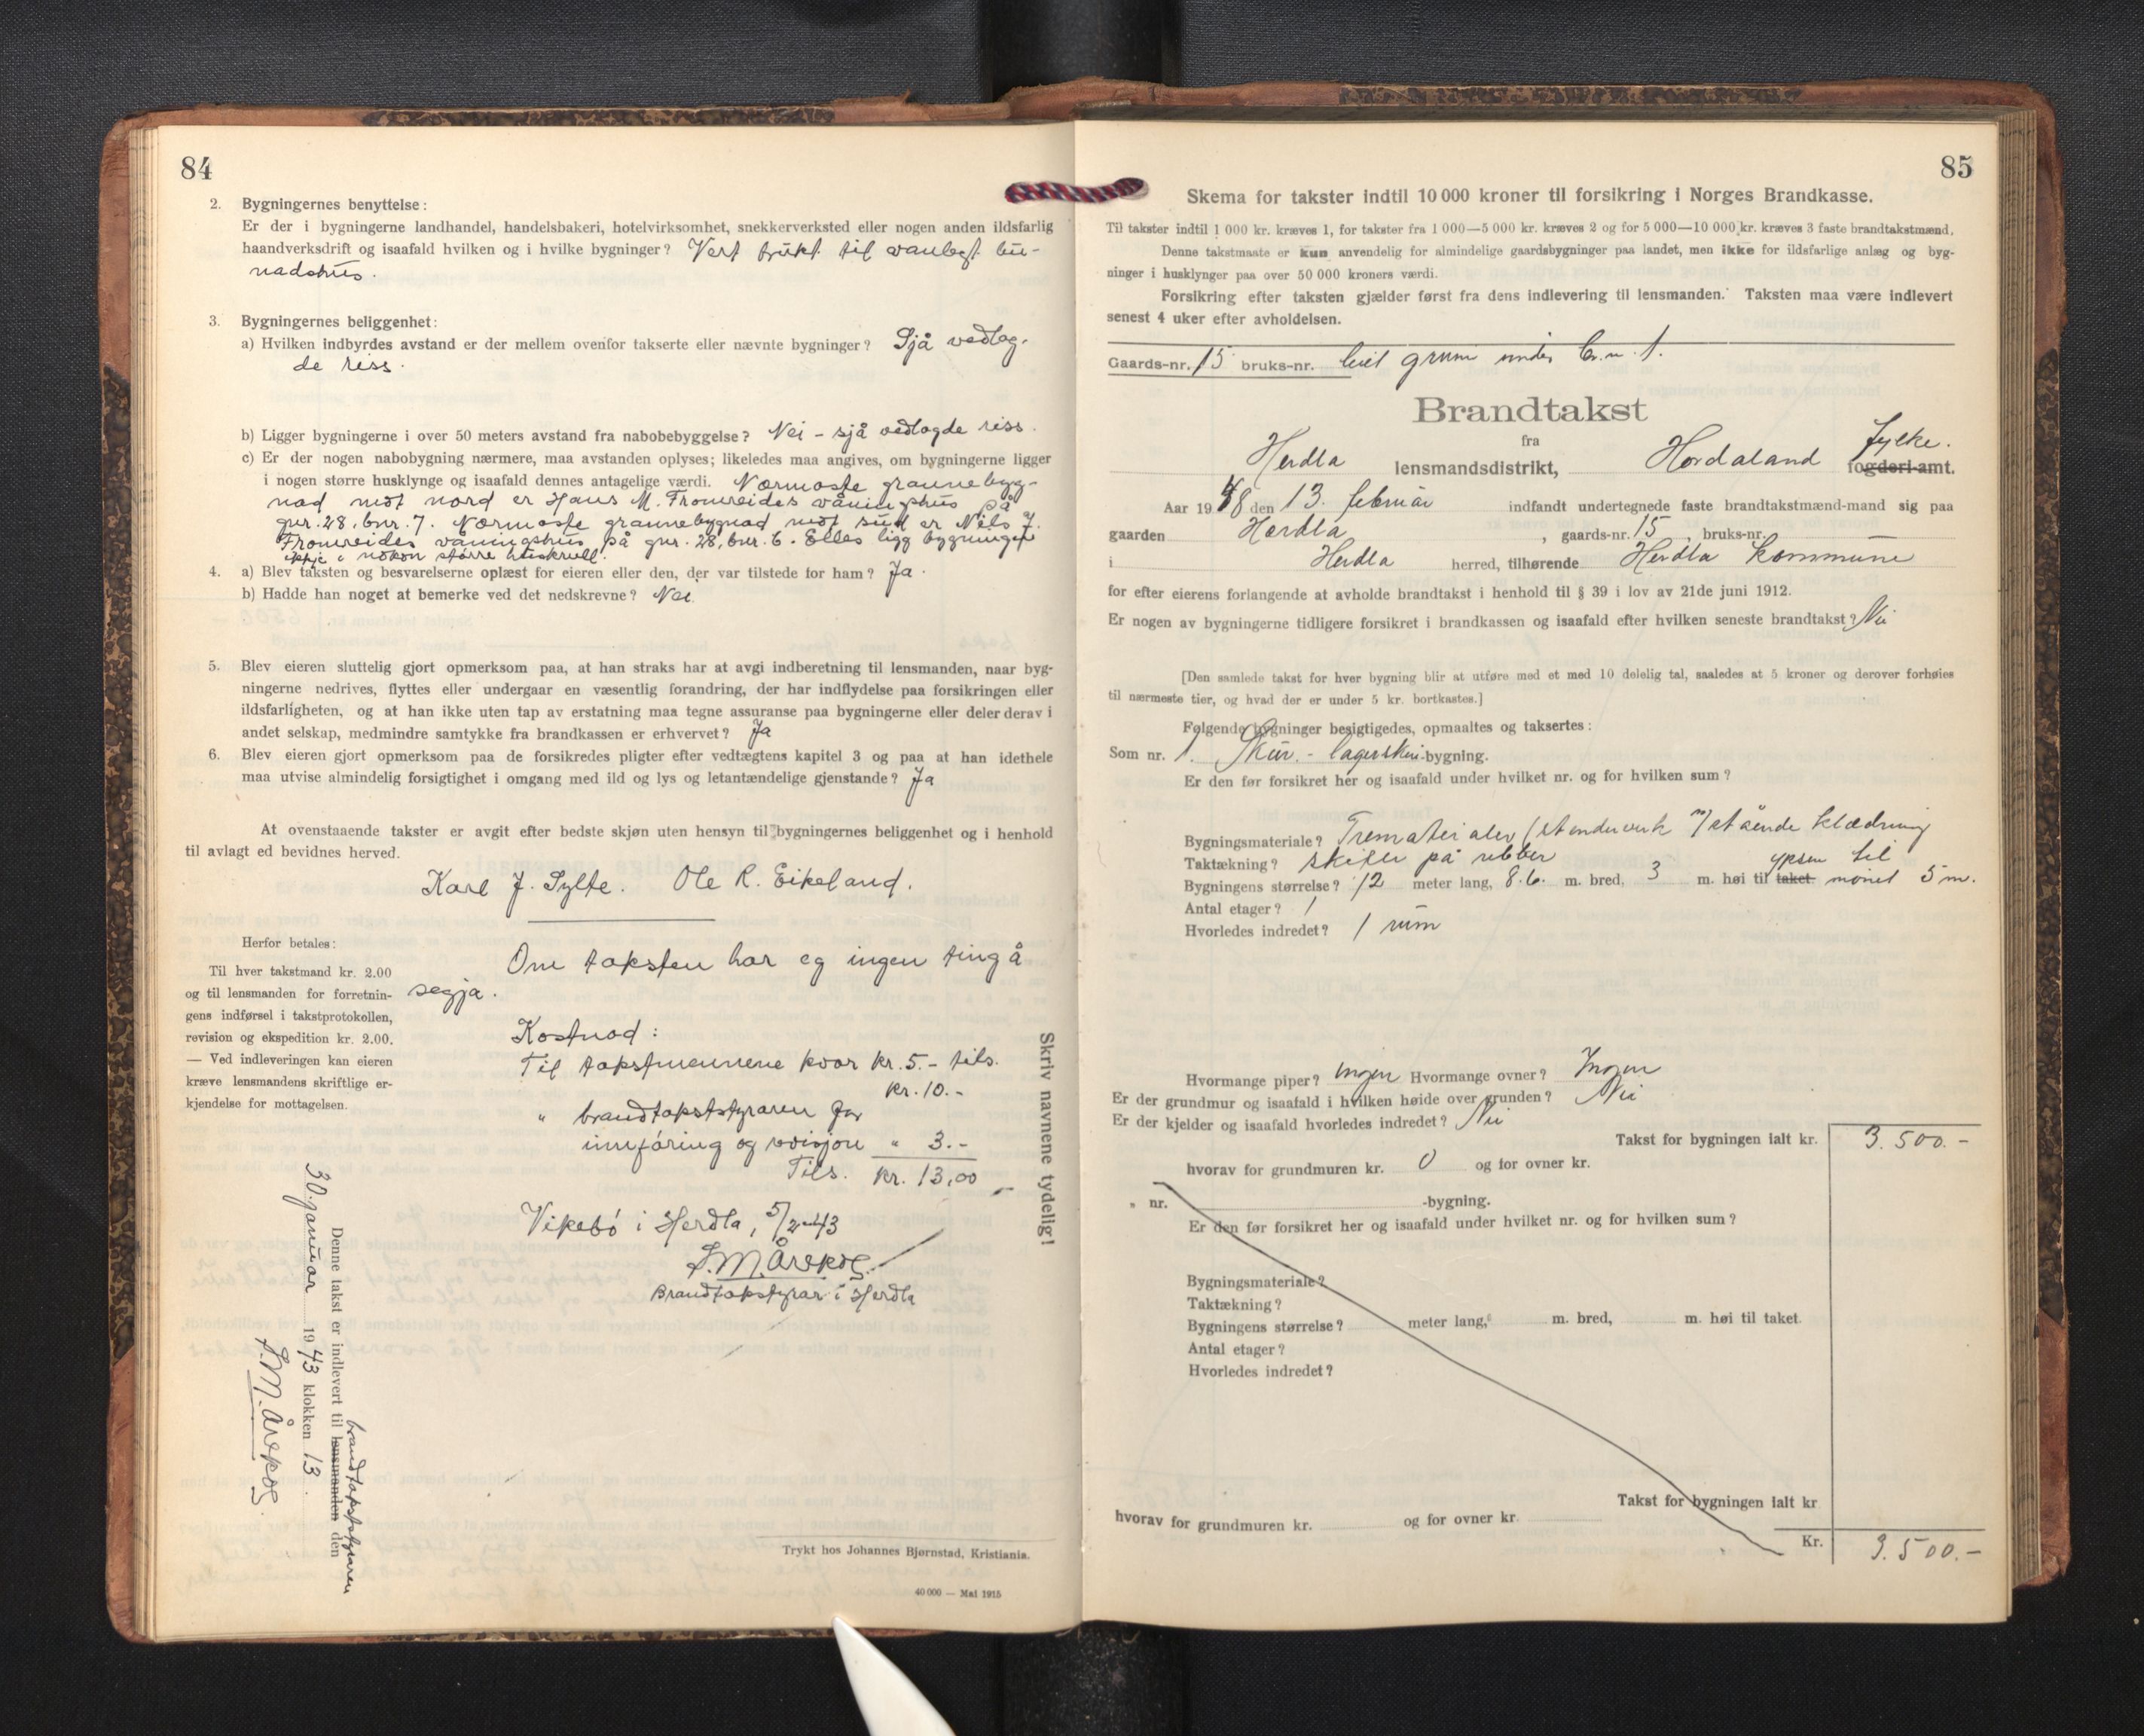 84
2. Bygningernes benyttelse:
Er der i bygningerne landhandel, handelsbakeri, hotelvirksomhet, snekkerverksted eller nogen anden ildsfarlig
haandverksdrift og isaafald hvilken og i hvilke bygninger? Vert brukt til vanlegt bu-
nadshus.
3. Bygningernes beliggenhet:
a) Hvilken indbyrdes avstand er der mellem ovenfor takserte eller nævnte bygninger? Sjå vedlag-
de riss.
b) Ligger bygningerne i over 50 meters avstand fra nabobebyggelse? Nei - sjå vedlagde riss.
c) Er der nogen nabobygning nærmere, maa avstanden oplyses; likeledes maa angives, om bygningerne ligger
i nogen større husklynge og isaafald dennes antagelige værdi. Nærmaste grannebyg-
nad mot nord er Hans M. Fromreides våningshus på
gnr. 28, bnr. 7. Nærmaste grannebygnad mot sud er Nils J.
Fromreides våningshus på gnr. 28, bnr. 6. Elles ligg bygningen
ikkje i nokon større huskrull.
4. a) Blev taksten og besvarelserne oplæst for eieren eller den, der var tilstede for ham? Ja.
b) Hadde han noget at bemerke ved det nedskrevne? Nei.
5. Blev eieren sluttelig gjort opmerksom paa, at han straks har at avgi indberetning til lensmanden, naar byg-
ningerne nedrives, flyttes eller undergaar en væsentlig forandring, der har indflydelse paa forsikringen eller
ildsfarligheten, og at han ikke uten tap av erstatning maa tegne assuranse paa bygningerne eller deler derav i
andet selskap, medmindre samtykke fra brandkassen er erhvervet? Ja
6. Blev eieren gjort opmerksom paa de forsikredes pligter efter vedtægtens kapitel 3 og paa at han idethele
maa utvise almindelig forsigtighet i omgang med ild og lys og letantændelige gjenstande? Ja
At ovenstaaende takster er avgit efter bedste skjøn uten hensyn til bygningernes beliggenhet og i henhold
til avlagt ed bevidnes herved.
Karl J. Sylte. Ole R. Eikeland.
Herfor betales:
Til hver takstmand kr. 2.00
og til lensmanden for forretnin-
gens indførsel i takstprotokollen,
revision og ekspedition kr. 2.00.
— Ved indleveringen kan eieren
kræve lensmandens skriftlige er-
kjendelse for mottagelsen.
Om taksten har eg ingen ting å
segja.
Kostnad:
Til takstmennene kvar kr. 5.- tils.
kr. 10.-
" brandtakststyraren for
innføring og revisjon " 3.-
Tils. kr. 13,00
Vikebø i Herdla, 5/2-43
Brandtakststyrar i Herdla
Skriv navnene tydelig!
Denne takst er indlevert til lensmanden den
brandtakststyraren
30. januar 1943 klokken 13.
Trykt hos Johannes Bjørnstad, Kristiania.
40 000 — Mai 1915
85
Skema for takster indtil 10 000 kroner til forsikring i Norges Brandkasse.
Til takster indtil 1 000 kr. kræves 1, for takster fra 1 000—5 000 kr. kræves 2 og for 5 000—10 000 kr. kræves 3 faste brandtakstmænd.
Denne takstmaate er kun anvendelig for almindelige gaardsbygninger paa landet, men ikke for ildsfarlige anlæg og byg-
ninger i husklynger paa over 50 000 kroners værdi.
Forsikring efter taksten gjælder først fra dens indlevering til lensmanden. Taksten maa være indlevert
senest 4 uker efter avholdelsen.
Gaards-nr. 15 bruks-nr. leid grunn under br.n. 1.
Brandtakst
fra
Herdla lensmandsdistrikt, Hordaland fogderi-amt.
fylke.
Aar 1948 den 13. februar indfandt undertegnede faste brandtakstmænd-mand sig paa
gaarden Herdla, gaards-nr. 15, bruks-nr.
i Herdla herred, tilhørende Herdla kommune
for efter eierens forlangende at avholde brandtakst i henhold til § 39 i lov av 21de juni 1912.
Er nogen av bygningerne tidligere forsikret i brandkassen og isaafald efter hvilken seneste brandtakst? Nei
[Den samlede takst for hver bygning blir at utføre med et med 10 delelig tal, saaledes at 5 kroner og derover forhøies
til nærmeste tier, og hvad der er under 5 kr. bortkastes.]
Følgende bygninger besigtigedes, opmaaltes og taksertes:
Som nr. 1. Skur. - lagerskur-bygning.
Er den før forsikret her og isaafald under hvilket nr. og for hvilken sum?
Bygningsmateriale? Trematerialer (stenderverk m/ stående klædning
Taktækning? skifer på rebber
Bygningens størrelse? 12 meter lang, 8.6. m. bred, 3 m. høi til taket
til mønet 5 m.
Antal etager? 1
Hvorledes indredet? 1 rum
Hvormange piper? ingen Hvormange ovner? Ingen
Er der grundmur og isaafald i hvilken høide over grunden? Nei
Er der kjelder og isaafald hvorledes indredet? Nei
Takst for bygningen ialt kr. 3.500.-
hvorav for grundmuren kr. 0 og for ovner kr.
" nr. -bygning.
Er den før forsikret her og isaafald under hvilket nr. og for hvilken sum?
Bygningsmateriale?
Taktækning?
Bygningens størrelse? meter lang, m. bred, m. høi til taket.
Antal etager?
Hvorledes indredet?
Takst for bygningen ialt kr
hvorav for grundmuren kr. og for ovner kr.
Kr. 3.500.-